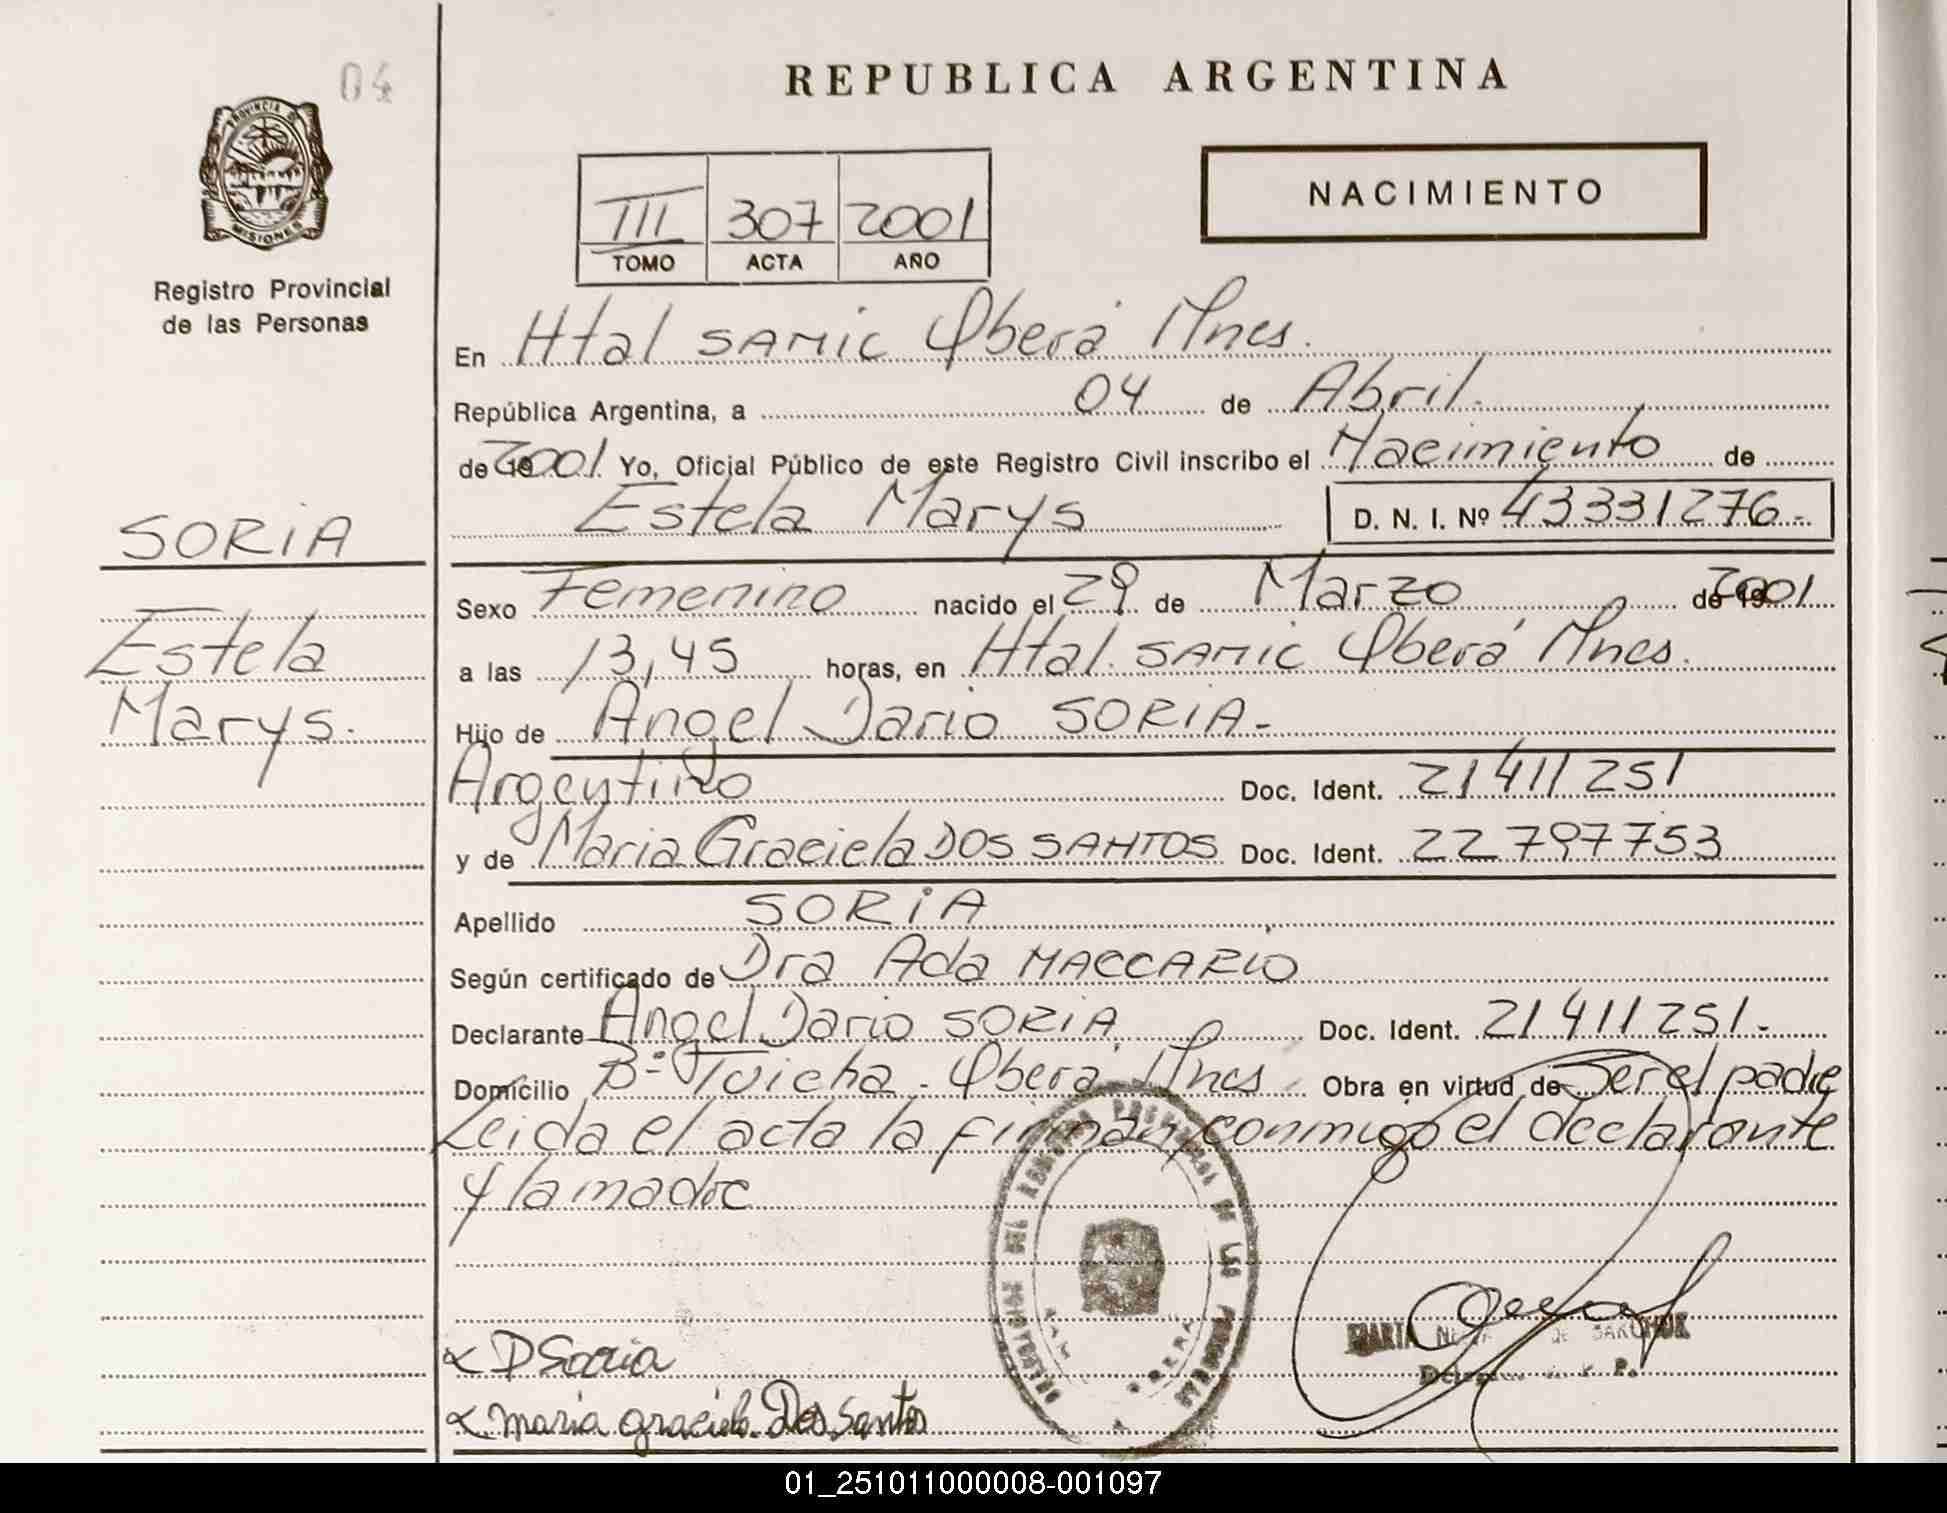 04
REPUBLICA ARGENTINA
PROVINCIA DE
MISIONES
Registro Provincial
de las Personas
III 307 2001
TOMO ACTA AÑO
NACIMIENTO
En Htal SAMIC Oberá Mnes.
República Argentina, a 04 de Abril.
de 2001. Yo, Oficial Público de este Registro Civil inscribo el Nacimiento de
Estela Marys D. N. I. Nº 43331276-
SORIA
Estela
Marys.
Sexo Femenino nacido el 29 de Marzo de 2001
a las 13,45 horas, en Htal. SAMIC Oberá Mnes.
Hijo de Angel Dario SORIA-
Argentino Doc. Ident. 21411251
y de Maria Graciela DOS SANTOS Doc. Ident. 22797753
Apellido SORIA
Según certificado de Dra Ada MACCARIO
Declarante Angel Dario SORIA Doc. Ident. 21411251-
Domicilio Bº Tuicha - Oberá Mnes Obra en virtud de Ser el padre
Leida el acta la firman conmigo el declarante
y la madre
D Soria
maria graciela Dos Santos
MARTA
01_251011000008-001097